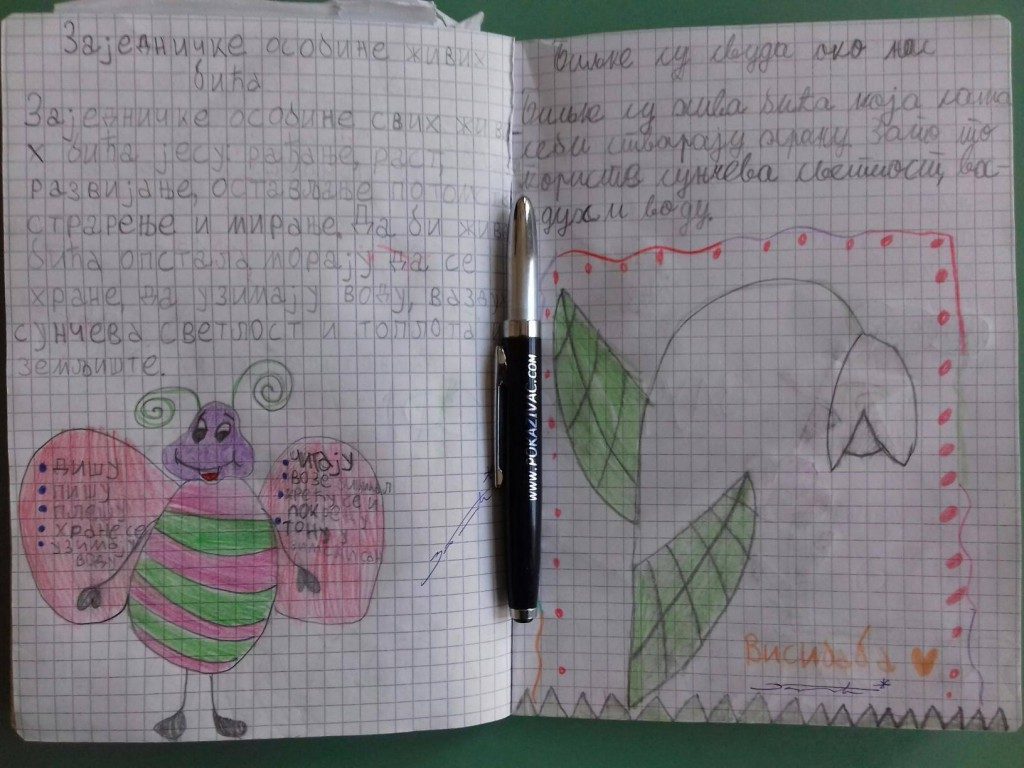 Заједничке особине живих
бића
Заједничке особине свих жив
х бића јесу рађање, раст,
развијање, остављање потом
страрење и мирање. Да би жив
бића опстала морају да се
хране, да узимају воду, вазд
сунчева светлост и топлота и
земљиште.
дишу
пишу
плешу
хране се
узима
воду
читају
возе
крећу се и
покрећу
тону у
Биљке су свуда око нас
Биљке су жива бића која сама
себи стварају храну зато што
користе сунчева светлост, ва-
дух и воду.
WWW.POKAZIVAC.COM
Висибаба